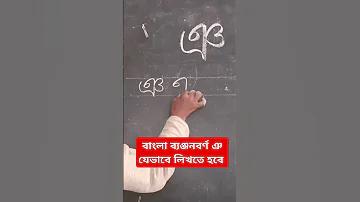 ঞ
ঞ
বাংলা ব্যঞ্জনবর্ণ ঞ
যেভাবে লিখতে হবে